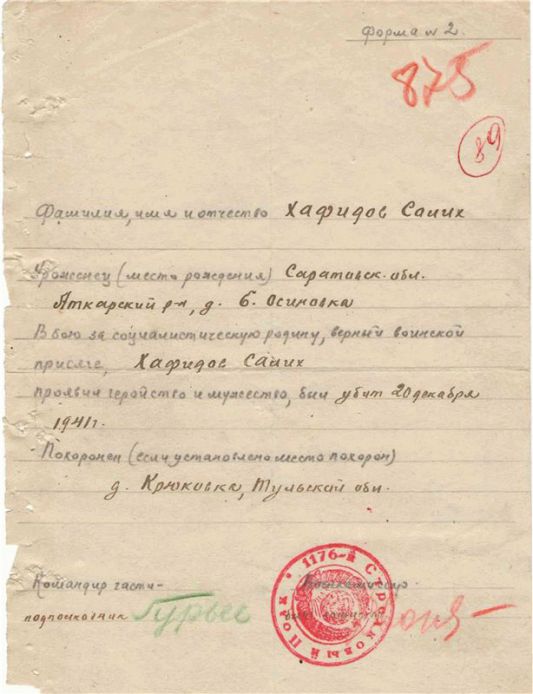 Форма № 2.
875
89
Фамилия, имя и отчество Хафидов Салих
Уроженец (место рождения) Саратовск. обл.
Аткарский р-н, д. Б. Осиновка
В бою за социалистическую родину, верный воинской
присяге, Хафидов Салих
проявив геройство и мужество, был убит 20 декабря
1941 г.
Похоронен (если установлено место похорон)
д. Крюковка, Тульской обл.
Командир части-
Военкомиссар
подполковник
1176-й Стрелковый Полк